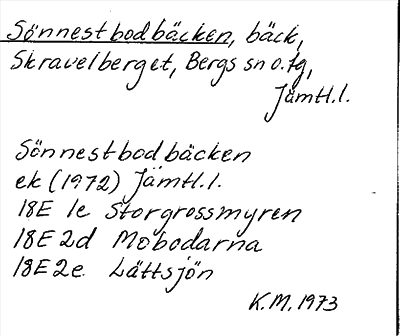 Sönnestbodbäcken, bäck,
Skravelberget, Bergs sn o. tg,
Jämtl.l.
Sönnestbodbäcken
ek (1972) Jämtl.l.
18E 1e Storgrossmyren
18E 2d Mobodarna
18E 2e Lättsjön
K.M. 1973